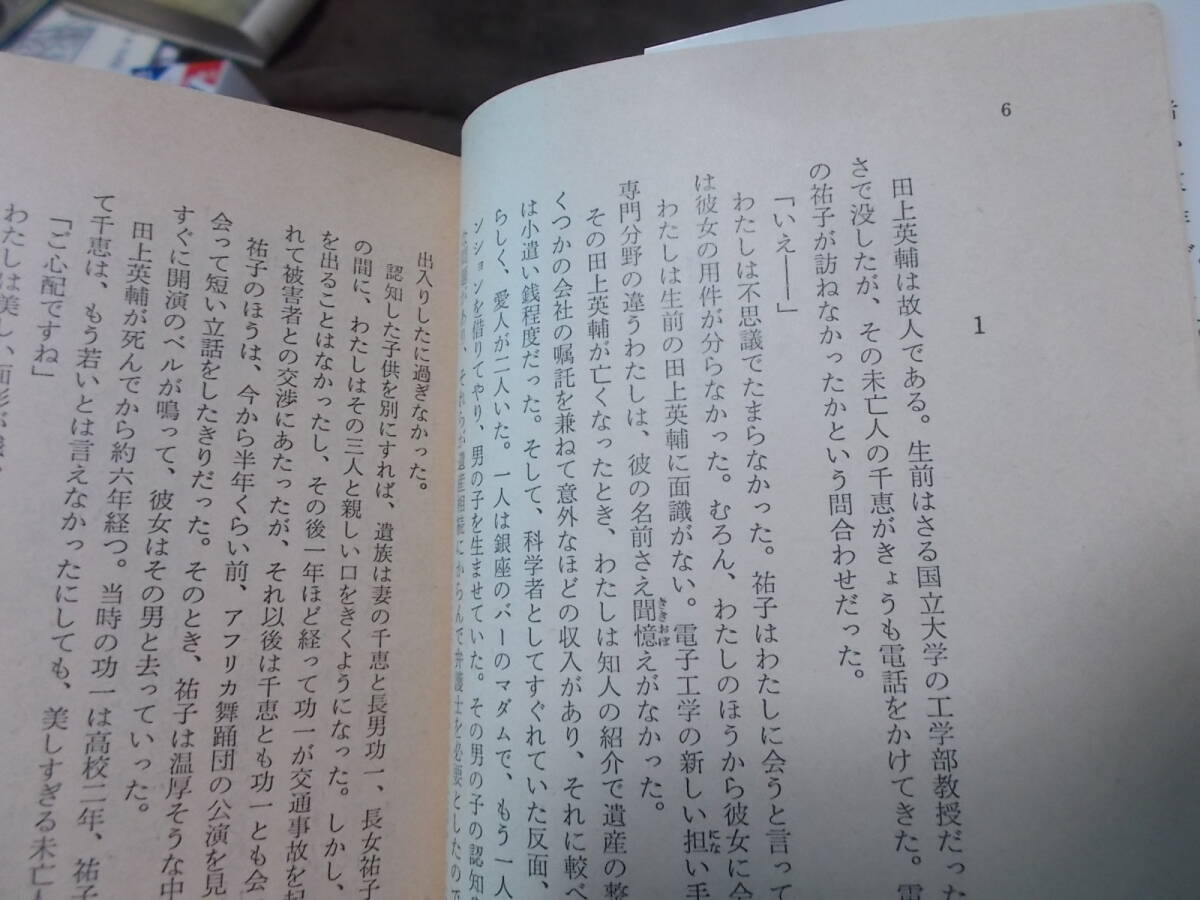 6
1
田上英輔は故人である。生前はさる国立大学の工学部教授だった
さで没したが、その未亡人の千恵がきょうも電話をかけてきた。電
の祐子が訪ねなかったかという問合わせだった。
「いえ――」
わたしは不思議でたまらなかった。祐子はわたしに会うと言って
は彼女の用件が分らなかった。むろん、わたしのほうから彼女に会
わたしは生前の田上英輔に面識がない。電子工学の新しい担い手
専門分野の違うわたしは、彼の名前さえ聞憶えがなかった。
その田上英輔が亡くなったとき、わたしは知人の紹介で遺産の整
くつかの会社の嘱託を兼ねて意外なほどの収入があり、それに較べ
は小遣い銭程度だった。そして、科学者としてすぐれていた反面、
らしく、愛人が二人いた。一人は銀座のバーのマダムで、もう一人
ンションを借りてやり、男の子を生ませていた。その男の子の認知
それらが遺産相続にからんで弁護士を必要としたので
出入りしたに過ぎなかった。
認知した子供を別にすれば、遺族は妻の千恵と長男功一、長女祐子
の間に、わたしはその三人と親しい口をきくようになった。しかし、
を出ることはなかったし、その後一年ほど経って功一が交通事故を起
れて被害者との交渉にあたったが、それ以後は千恵とも功一とも会
祐子のほうは、今から半年くらい前、アフリカ舞踊団の公演を見
会って短い立話をしたきりだった。そのとき、祐子は温厚そうな中
すぐに開演のベルが鳴って、彼女はその男と去っていった。
田上英輔が死んでから約六年経つ。当時の功一は高校二年、祐子
て千恵は、もう若いとは言えなかったにしても、美しすぎる未亡人
「ご心配ですね」
わたしは美し